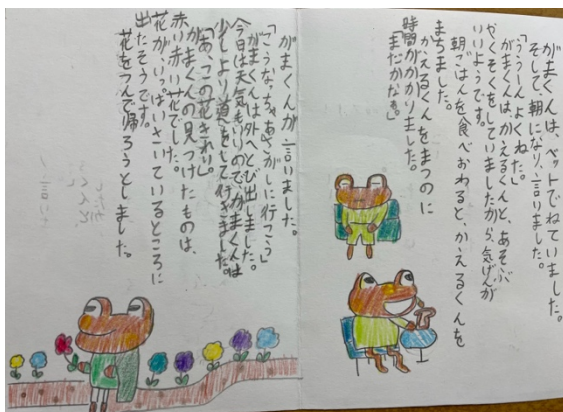 がまくんは、ベットでねていました。
そして、朝になり、言いました。
「うぅーんよくねた。」
がまくんはかえるくんと、あそぶ
やくそくをしていましたから、気げんが
いいようです。
朝ごはんを食べおわると、かえるくんを
まちました。
かえるくんをまつのに
時間がかかりました。
「まだかなぁ。」
がまくんが言いました。
「こうなっちゃあさがしに行こう」
がまくんは外へとび出しました。
今日は天気もいいのでがまくんは
少しより道をして行きました。
「あっこの花きれい。」
がまくんの見つけたものは、
赤い赤い花でした。
花が、いっぱいさけているところに
出たそうです。
花をつんで帰ろうとしました。